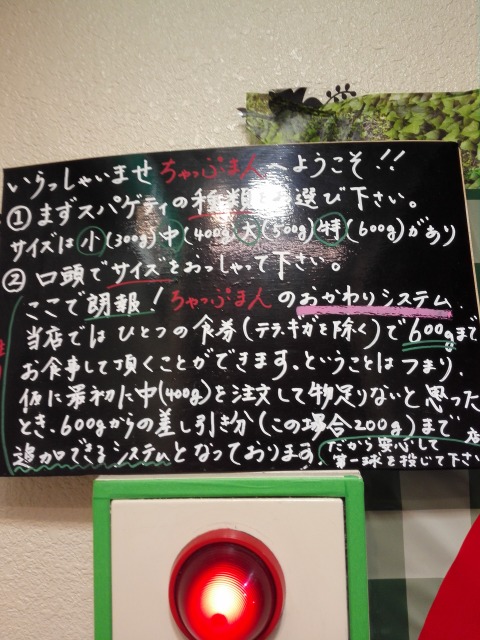 いらっしゃいませ ちゃっぷまんへようこそ!!
①まずスパゲティの種類 選び下さい。
サイズは小(300g)中(400g)大(500g)特(600g)があり
②口頭でサイズをおっしゃって下さい。
ここで朗報!ちゃっぷまんのおかわりシステム
当店ではひとつの食券(テラ、ギガを除く)で600gまで
お食事して頂くことができます。ということはつまり、
仮に最初に中(400g)を注文して物足りないと思った
とき、600gからの差し引き分(この場合200g)まで
追加できるシステムとなっております。
だから安心して
第一球を投じて下さい